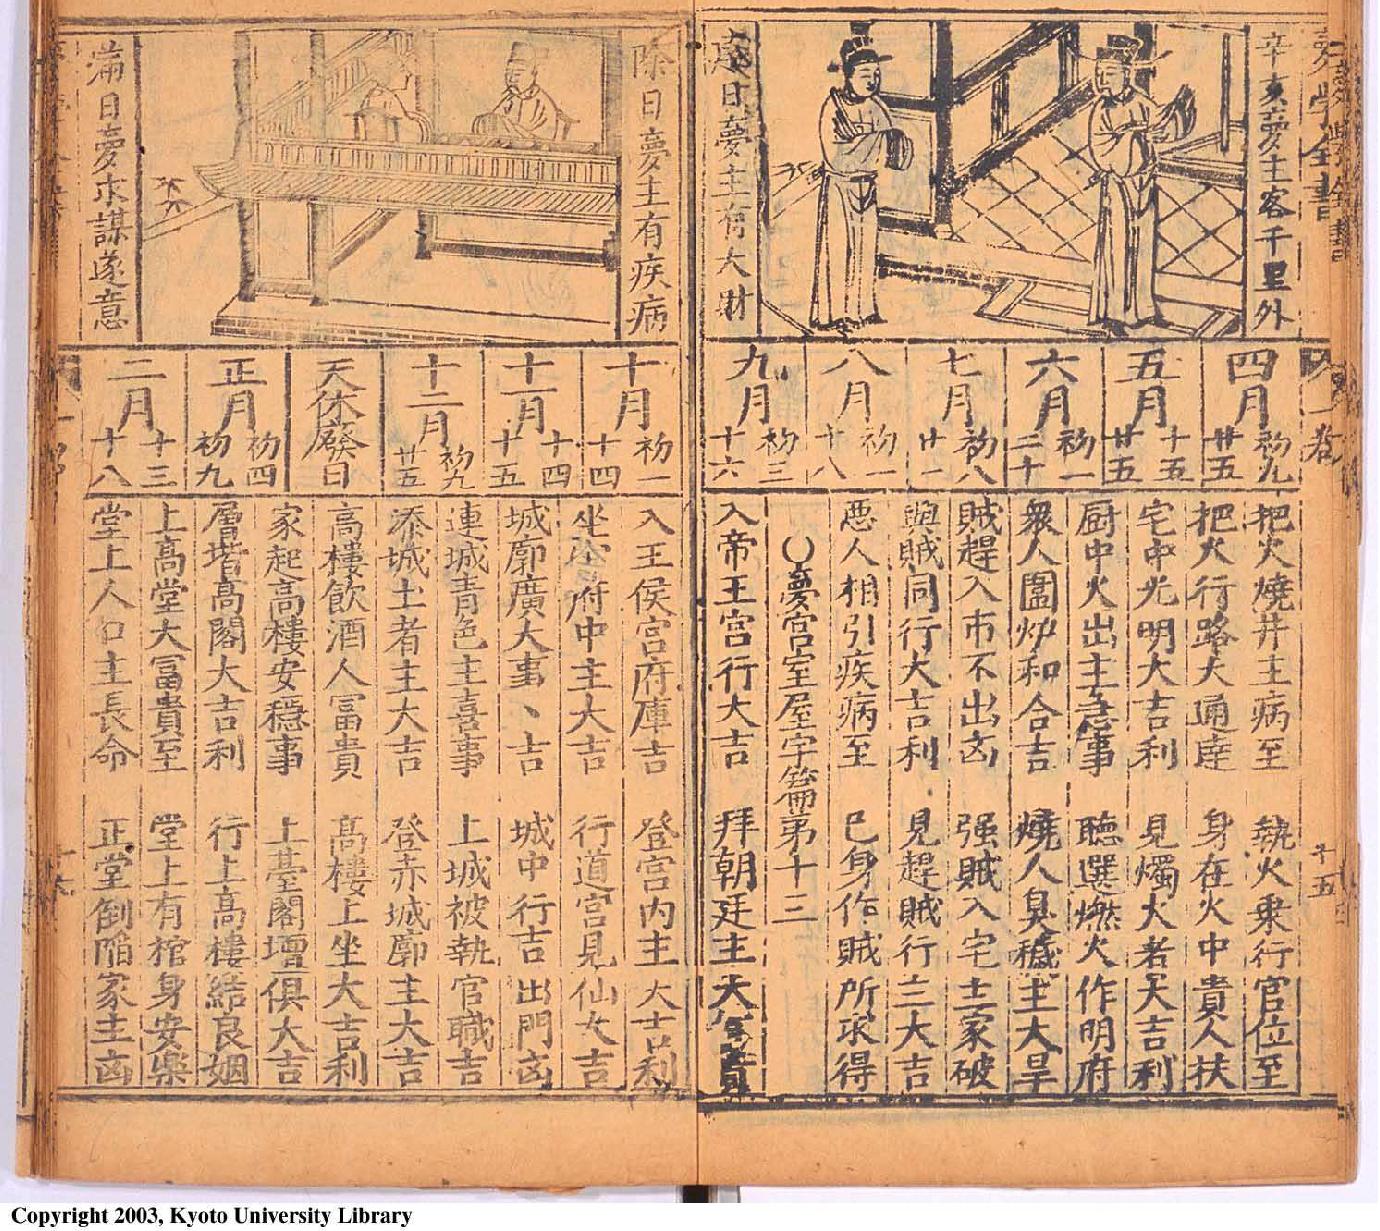 夢學全書
辛亥夢主客千里外
建日夢主有大財
四月 初九 廿五
五月 十五 廿五
六月 初一 二十
七月 初八 廿一
八月 初一 十八
九月 初三 十六
把火燒井主病至 執火乘行官位至
把火行路大通達 身在火中貴人扶
宅中光明大吉利 見燭大者大吉利
厨中火出主急事 聽選燃火作明府
衆人圍炉和合吉 燒人臭穢主大旱
賊趕入市不出凶 强賊入宅主家破
與賊同行大吉利 見趕賊行三大吉
悪人相引疾病至 已身作賊所求得
夢宮室屋宇篇第十三
入帝王宮行大吉 拜朝廷主大富貴
一卷
十五
除日夢主有疾病
滿日夢求謀遂意
十月 初一 十四
十一月 十四 十五
十二月 初九 廿五
天休廢日
正月 初四 初九
二月 十三 十八
入王侯宮府庫吉 登宮内主大吉利
坐府中主大吉 行道宮見仙女吉
城廓廣大事丶吉 城中行吉出門凶
連城青色主喜事 上城被執官職吉
添城土者主大吉 登赤城廓主大吉
高樓飲酒人冨貴 高樓上坐大吉利
家起高樓安穩事 上臺閣壇俱大吉
層堦高閣大吉利 行上高樓結良姻
上高堂大冨貴至 堂上有棺身安樂
堂上人口主長命 正堂倒陷家主凶
Copyright 2003, Kyoto University Library